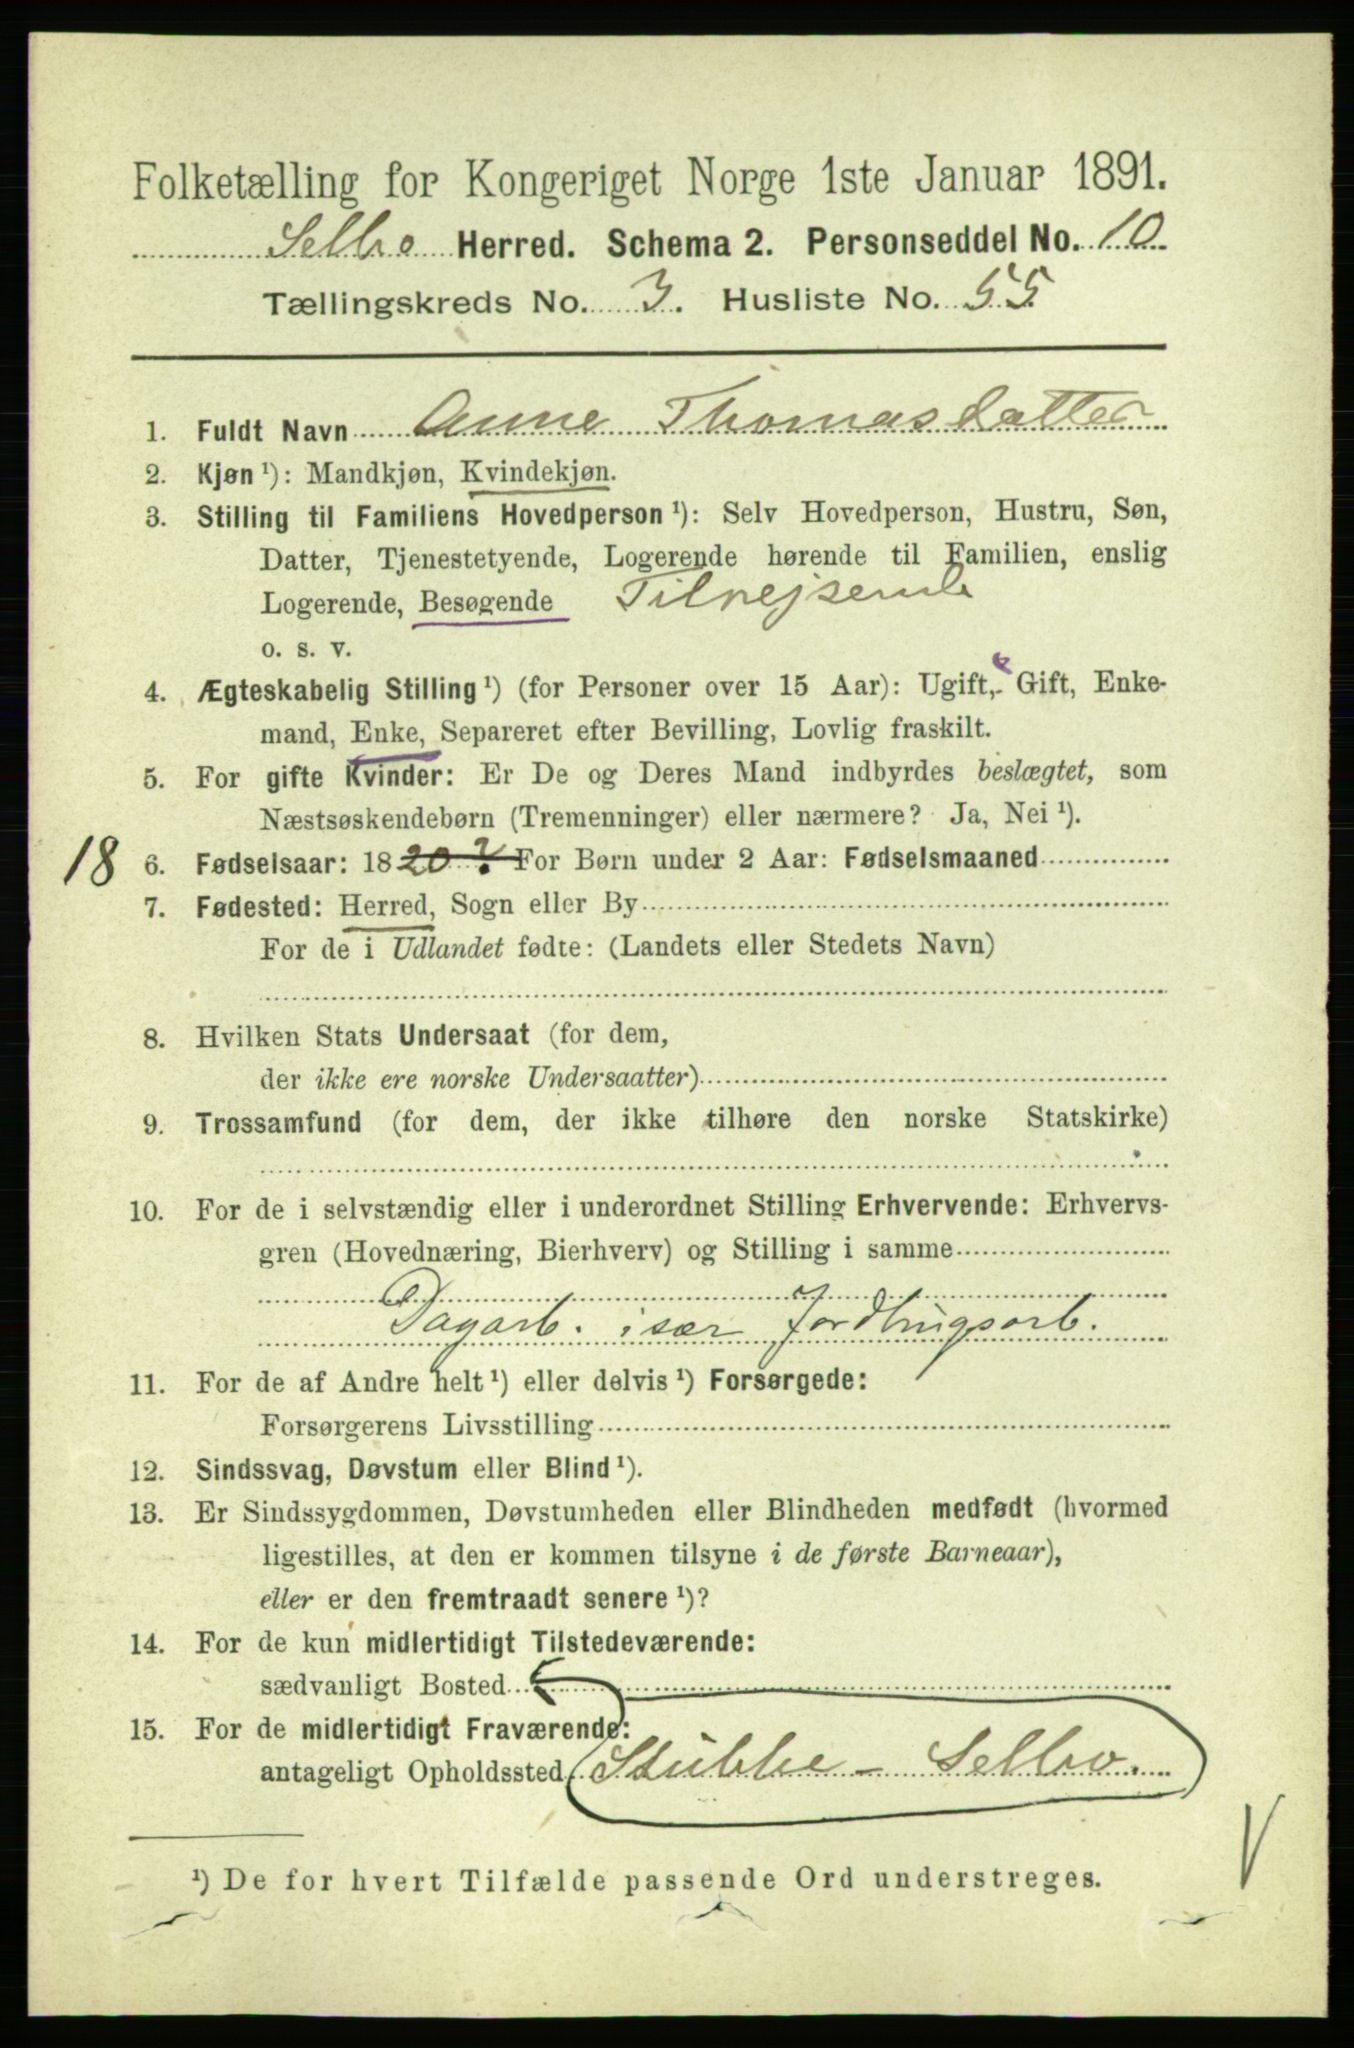 Folketælling for Kongeriget Norge 1ste Januar 1891.
Selbo Herred. Schema 2. Personseddel No. 10.
Tællingskreds No. 3. Husliste No. 55
1. Fuldt Navn Anne Thomasdatter
2. Kjøn ¹): Mandkjøn, Kvindekjøn.
3. Stilling til Familiens Hovedperson ¹): Selv Hovedperson, Hustru, Søn,
Datter, Tjenestetyende, Logerende hørende til Familien, enslig
Logerende, Besøgende Tilrejsende
o. s. v.
4. Ægteskabelig Stilling ¹) (for Personer over 15 Aar): Ugift, Gift, Enke-
mand, Enke, Separeret efter Bevilling, Lovlig fraskilt.
5. For gifte Kvinder: Er De og Deres Mand indbyrdes beslægtet, som
Næstsøskendebørn (Tremenninger) eller nærmere? Ja, Nei ¹).
18 6. Fødselsaar: 1820 ? For Børn under 2 Aar: Fødselsmaaned
7. Fødested: Herred, Sogn eller By
For de i Udlandet fødte: (Landets eller Stedets Navn)
8. Hvilken Stats Undersaat (for dem,
der ikke ere norske Undersaatter)
9. Trossamfund (for dem, der ikke tilhøre den norske Statskirke)
10. For de i selvstændig eller i underordnet Stilling Erhvervende: Erhvervs-
gren (Hovednæring, Bierhverv) og Stilling i samme
Dagarb. især Jordbrugsarb.
11. For de af Andre helt ¹) eller delvis ¹) Forsørgede:
Forsørgerens Livsstilling
12. Sindssvag, Døvstum eller Blind ¹).
13. Er Sindssygdommen, Døvstumheden eller Blindheden medfødt (hvormed
ligestilles, at den er kommen tilsyne i de første Barneaar),
eller er den fremtraadt senere ¹)?
14. For de kun midlertidigt Tilstedeværende:
sædvanligt Bosted
15. For de midlertidigt Fraværende:
antageligt Opholdssted Stubbe - Selbo.
¹) De for hvert Tilfælde passende Ord understreges.
V